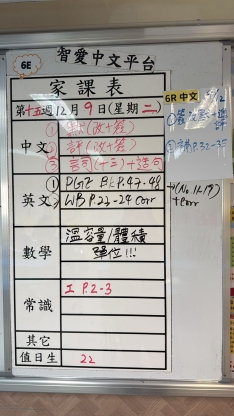 6E
智愛中文平台
家課表
第十五週12月9日(星期二)
中文
① 默(改+簽)
② 評(改+簽)
③ 詞(十三)+造句
英文
① PGE BLP.47-48
② WB P.22-24 Corr
→(No.
+Corr
數學
溫容量/體積
單位!!!
常識
工 P.2-3
其它
值日生
22
6R 中文
②
P.32-35